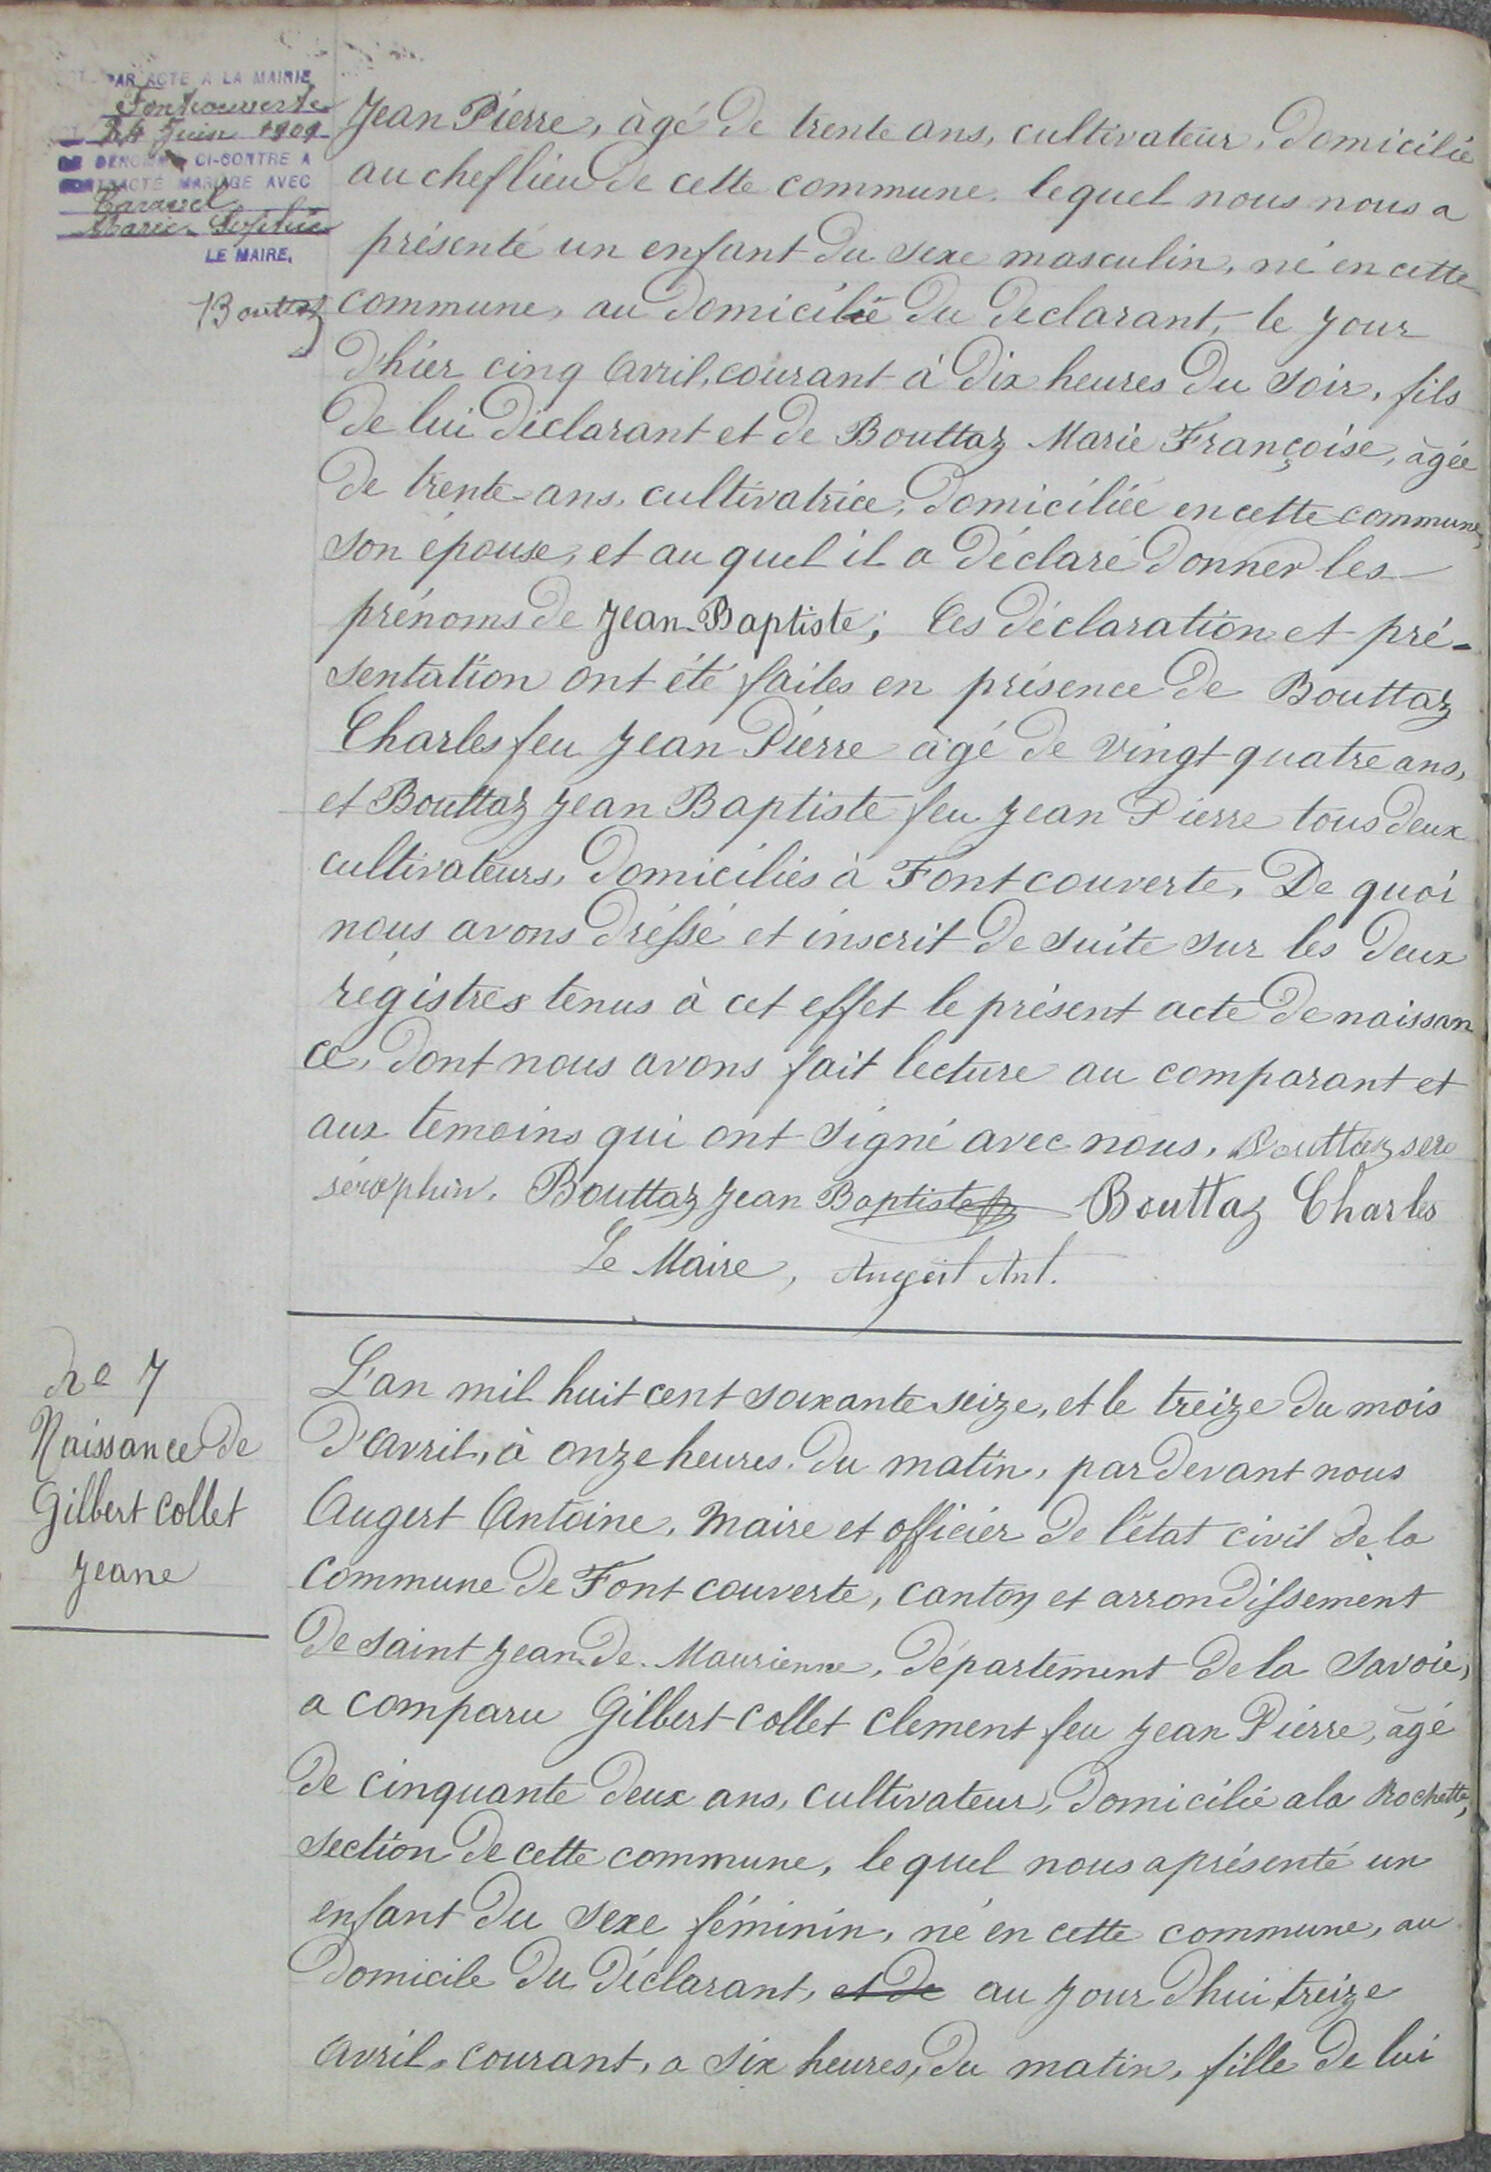 PAR ACTE A LA MAIRIE
Fontcouverte
24 Juin 1901
CI-CONTRE A
CONTRACTÉ MARIAGE AVEC
Taravel
Marie Sophie
LE MAIRE,
Bouttaz
Jean Pierre, âgé de trente ans, cultivateur, domicilié
au chef lieu de cette commune. lequel nous nous a
présenté un enfant du sexe masculin, né en cette
commune, au domicile du declarant, le jour
d'hier cinq Avril, courant à dix heures du soir, fils
de lui déclarant et de Bouttaz Marie Françoise, âgée
de trente ans, cultivatrice, domiciliée en cette commune,
son épouse, et au quel il a déclaré donner les
prénoms de Jean-Baptiste; Ces déclaration et pré-
sentation ont été faites en présence de Bouttaz
Charles feu Jean Pierre âgé de vingt quatre ans,
et Bouttaz Jean Baptiste feu Jean Pierre tous deux
cultivateurs, domiciliés à Fontcouverte, De quoi
nous avons dréssé et inscrit de suite sur les deux
régistres tenus à cet effet le présent acte de naissan
ce, dont nous avons fait lecture au comparant et
aux temoins qui ont signé avec nous. Bouttaz sera
séraphin. Bouttaz Jean Baptiste Bouttaz Charles
Le Maire, Augert Ant.
No 7
Naissance de
Gilbert Collet
Jeane
L'an mil huit cent soixante seize, et le treize du mois
d'Avril, à onze heures du matin, par devant nous
Augert Antoine, Maire et officier de l'état civil de la
Commune de Font couverte, canton et arrondissement
de Saint Jean de Maurienne, département de la Savoie,
a comparu Gilbert-Collet Clement feu Jean Pierre, âgé
de cinquante deux ans, cultivateur, domicilié a la Rochette,
section de cette commune, le quel nous a présenté un
enfant du sexe féminin, né en cette commune, au
domicile du déclarant, et de au jour d'hui treize
Avril courant, a six heures, du matin, fille de lui